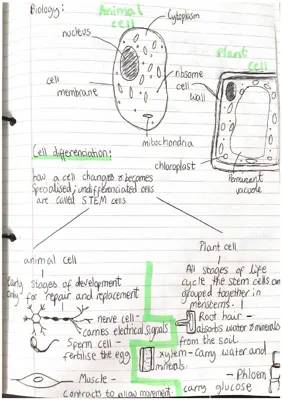 Biology:
Animal
cell
Cytoplasm
nucleus
Plant
cell
cell
membrane
ribosome
cell
wall
mitochondria
chloroplast
Permanent
vacuole
Cell differenciation:
how a cell changes & becomes
Specialised; undifferenciated cells
are called STEM cells
animal cell
Plant cell
early
only
stages of development
for repair and replacement
All stages of life
cycle the stem cells are
grouped together in
meristems.
nerve cell-
carries electrical signals
Root hair -
absorbs water & minerals
from the soil
Sperm cell-
fertilise the egg
xylem - carry water and
minerals
Muscle -
contracts to allow movement.
Phloem -
carry glucose